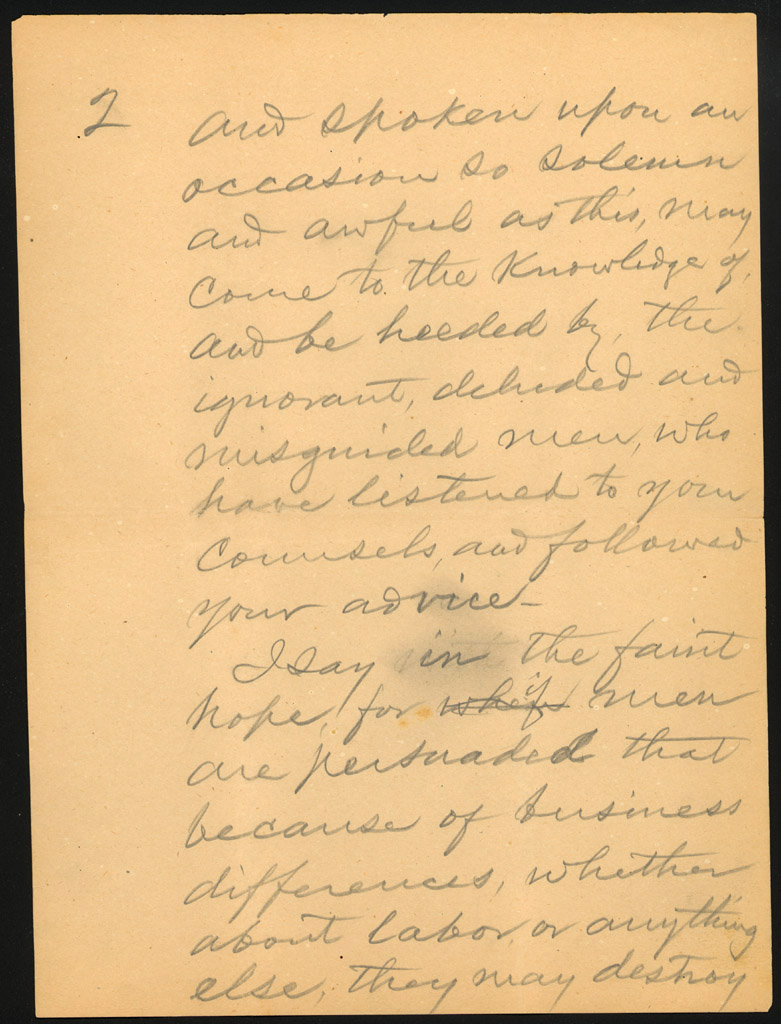 2
and spoken upon an
occasion so solemn
and awful as this, may
come to the knowledge of,
and be heeded by, the
ignorant, deluded and
misguided men, who
have listened to your
counsels, and followed
your advice—
I say in the faint
hope, for if men
are persuaded that
because of business
differences, whether
about labor, or anything
else, they may destroy